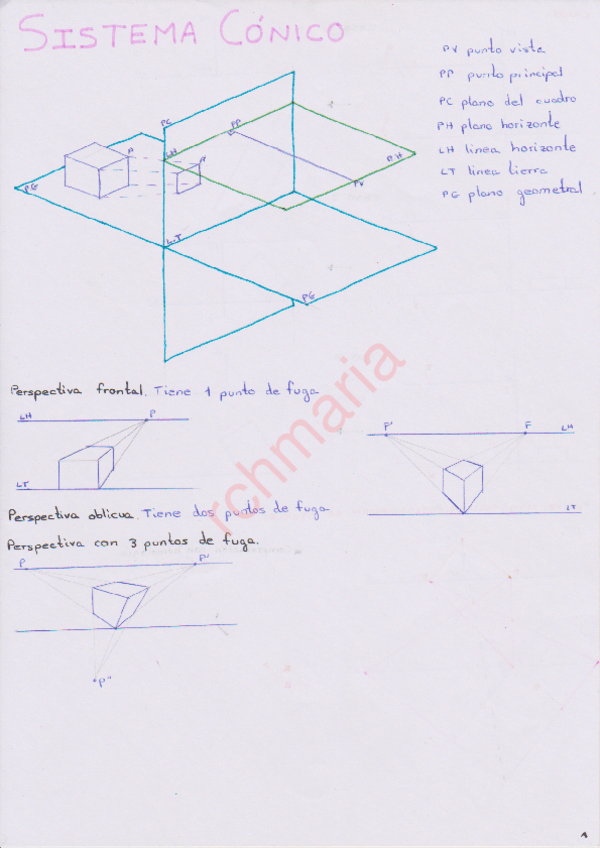 SISTEMA CÓNICO
PV punto vista
PP punto principal
PC plano del cuadro
PH plano horizonte
LH linea horizonte
LT linea tierra
PG plano geometral
PC
PP
A
A'
LH
PH
PG
PV
L.T
PG
rchmaria
Perspectiva frontal. Tiene 1 punto de fuga
LH
P
LT
F'
F
LH
LT
Perspectiva oblicua. Tiene dos puntos de fuga
Perspectiva con 3 puntos de fuga.
P
P'
P"
1